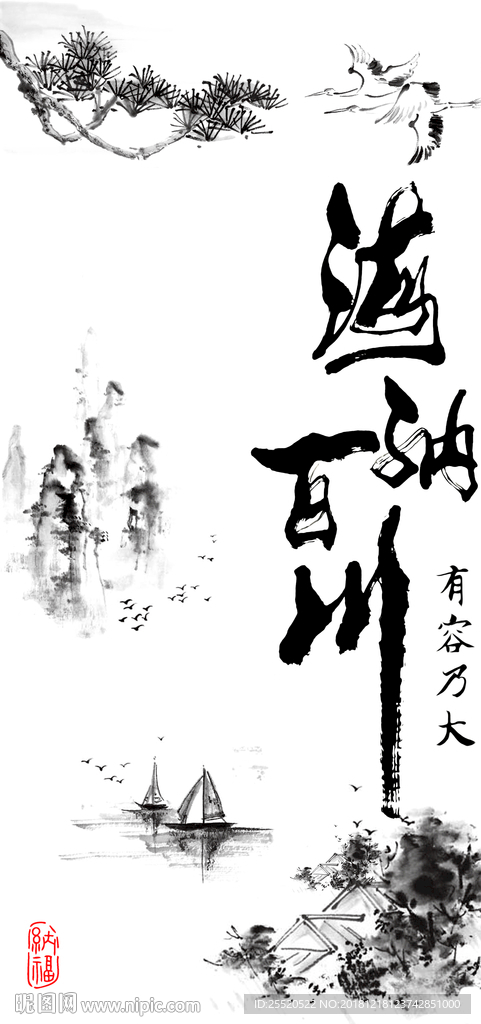 海纳百川
有容乃大
纳福
昵图网 www.nipic.com
ID:25520522 NO:20181218123742851000